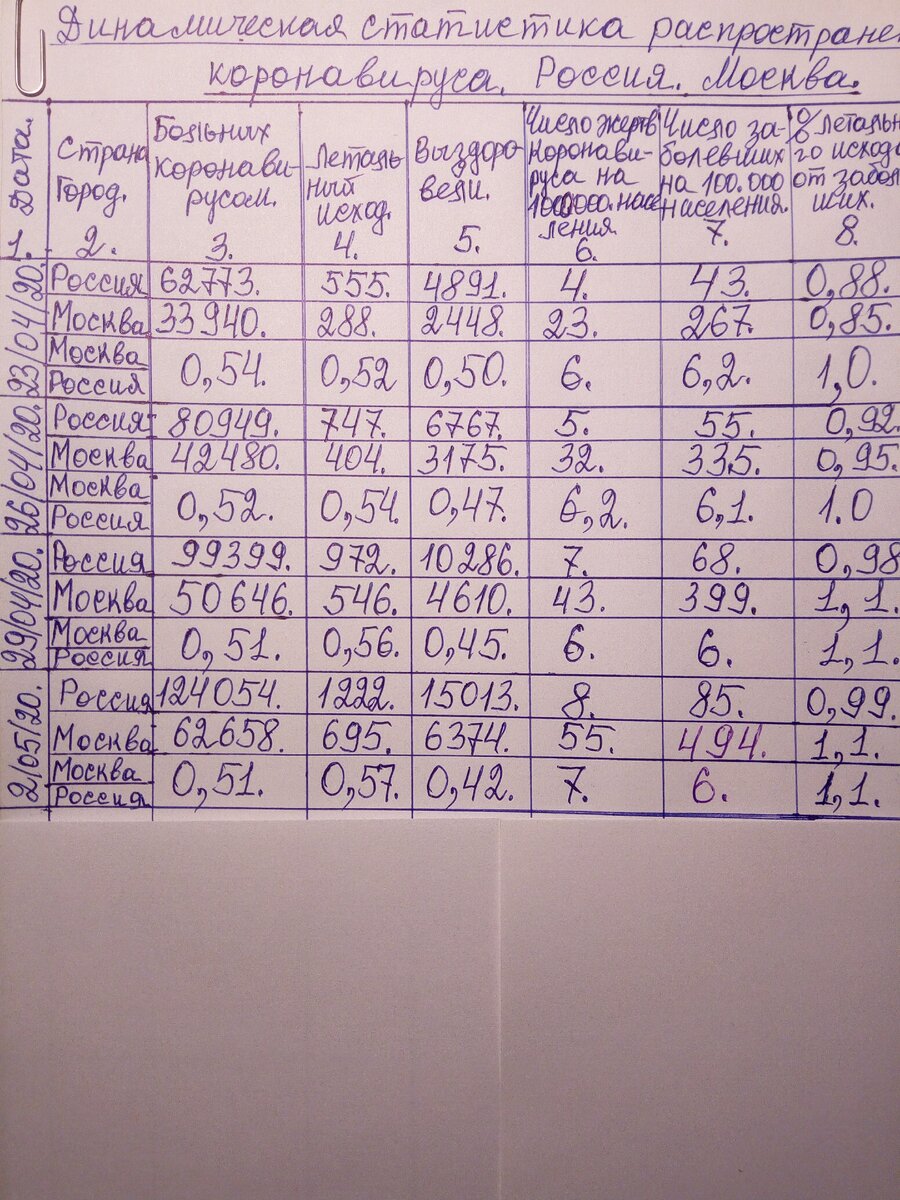 Динамическая статистика распростране
коронавируса. Россия. Москва.
1. Дата.
Страна Город. 2.
Больных коронави- русом. 3.
Леталь- ный исход. 4.
Выздоро- вели. 5.
Число жертв коронави- руса на населения 6.
Число за- болевших на 100.000 населения. 7.
% летальн го исход от забол ших. 8.
23/04/20.
Россия 62773. 555. 4891. 4. 43. 0,88.
Москва 33940. 288. 2448. 23. 267. 0,85.
Москва
Россия 0,54. 0,52 0,50. 6. 6,2. 1,0.
26/04/20.
Россия 80949. 747. 6767. 5. 55. 0,92.
Москва 42480. 404. 3175. 32. 335. 0,95.
Москва
Россия 0,52. 0,54. 0,47. 6,2. 6,1. 1.0
29/04/20.
Россия 99399. 972. 10286. 7. 68. 0,98
Москва 50646. 546. 4610. 43. 399. 1,1.
Москва
Россия 0,51. 0,56. 0,45. 6. 6. 1,1.
2/05/20.
Россия 124054. 1222. 15013. 8. 85. 0,99.
Москва 62658. 695. 6374. 55. 494. 1,1.
Москва
Россия 0,51. 0,57. 0,42. 7. 6. 1,1.